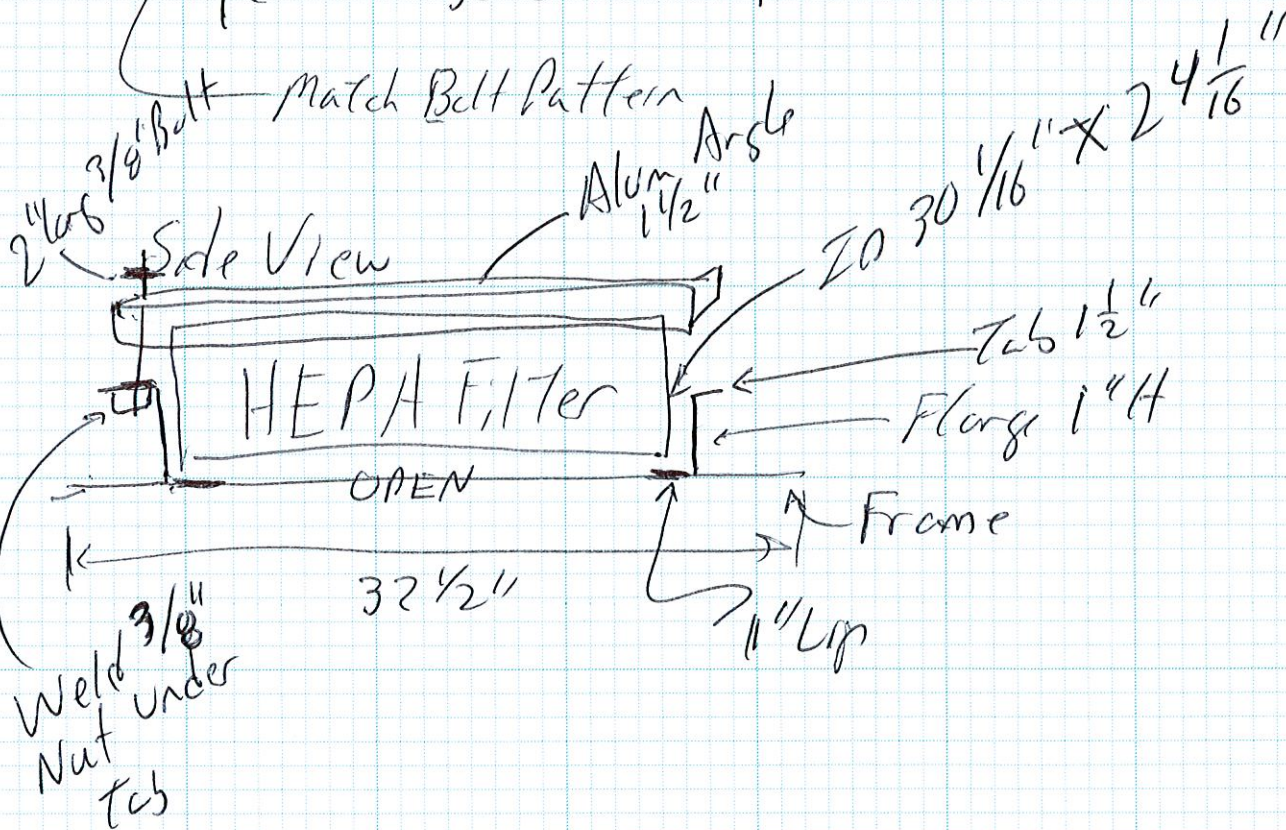 Match Bolt Pattern
3/8" Bolt
2" long
Side View
Alum Angle
1 1/2"
ID 30 1/16" X 24 1/16"
Tab 1 1/2"
HEPA Filter
Flange 1" H
OPEN
Frame
32 1/2"
1" Lip
Weld 3/8"
Nut under
Tab